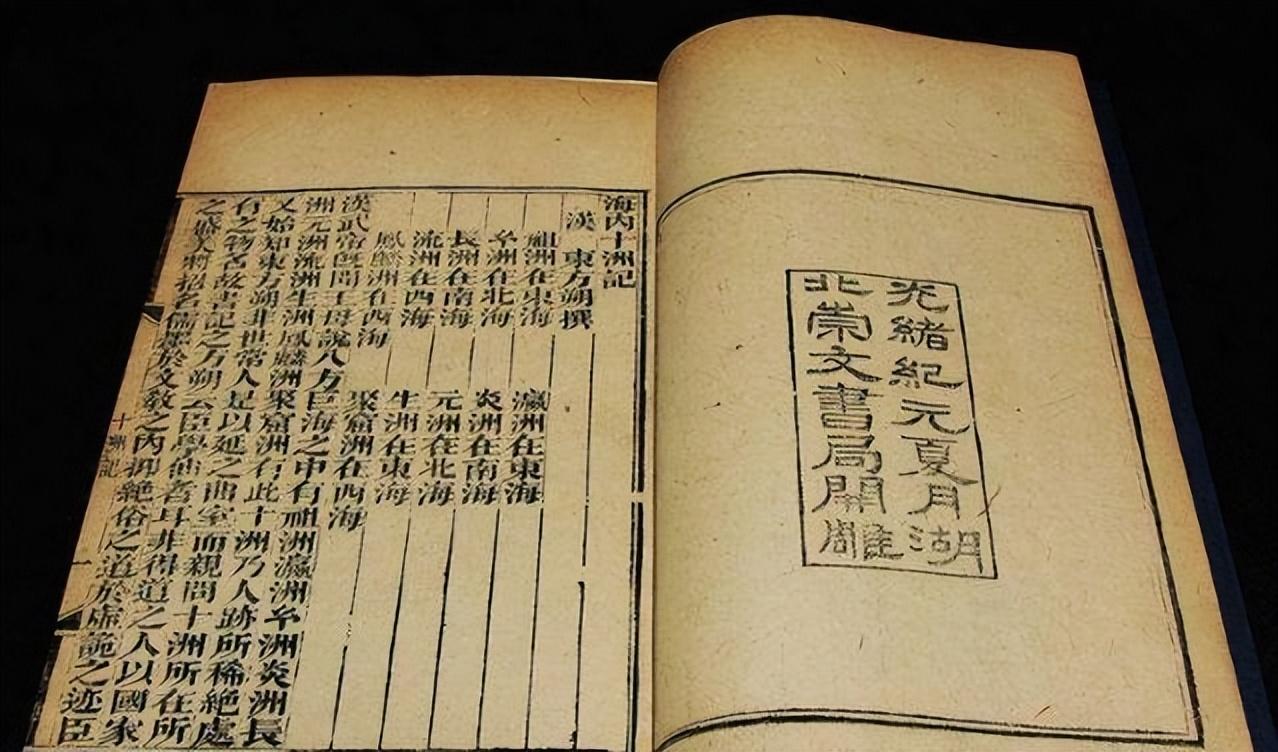 光緒紀元夏月湖
北崇文書局開雕
海內十洲記
漢 東方朔撰
祖洲在東海 瀛洲在東海
玄洲在北海 炎洲在南海
長洲在南海 元洲在北海
流洲在西海 生洲在東海
鳳麟洲在西海 聚窟洲在西海
漢武帝既聞王母說八方巨海之中有祖洲瀛洲玄洲炎洲長
洲元洲流洲生洲鳳麟洲聚窟洲有此十洲乃人跡所稀絕處
又始知東方朔非世常人是以延之曲室而親問十洲所在所
有之物名故書記之方朔云臣學仙者耳非得道之人以國家
之盛美將招名儒墨於文教之內抑絕俗之道於虛詭之迹臣
十洲記 一